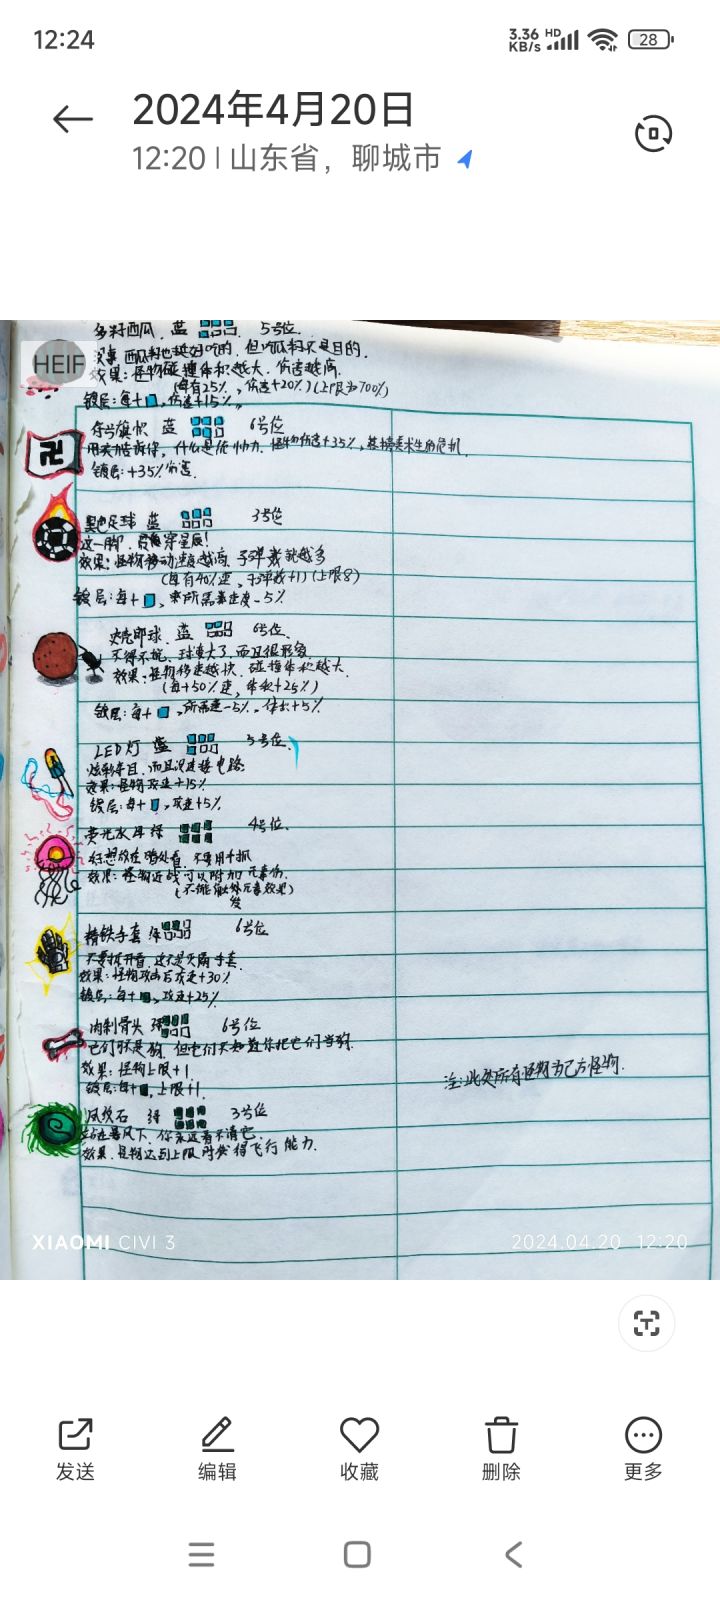 12:24
3.36 KB/s HD 28
2024年4月20日
12:20 | 山东省，聊城市
HEIF
多籽西瓜 蓝 5号位
西瓜籽也挺好吃的，但吃瓜籽不是目的.
效果：怪物碰撞体积越大，伤害越高
(每有25%，伤害+20%)(上限为700%)
镀层：每+，伤害+15%
符号旗帜 蓝 6号位
用来告诉你，什么是 怪物伤害+35%，
镀层：+35%伤害.
黑色足球 蓝 3号位
这一脚，穿星辰！
效果：怪物移动速度越高，子弹数就越多
(每有40%速，子弹数+1)(上限8)
镀层：每+，所需速度-5%
球 蓝 6号位.
不得不说，球变大了，而且很形象
效果：怪物移速越快，碰撞体积越大
(每+50%速，体积+25%)
镀层：每+，所需速-5%，体积+5%
LED灯 蓝 5号位
炫彩夺目，而且没连接电路
效果：怪物攻速+15%
镀层：每+，攻速+5%
荧光水母 绿 4号位.
幻想放在暗处看，不要用手抓
效果：怪物近战可以附加元素伤.
(不能触发元素效果)
精铁手套 绿 6号位
不要掰开看，这不是灭霸手套.
效果：怪物攻击后攻速+30%
镀层：每+，攻速+25%
肉制骨头 绿 6号位
它们不是狗，但它们不知道你把它们当狗.
效果：怪物上限+1
镀层：每+，上限+1.
注：此处所有怪物为己方怪物.
风纹石 绿 3号位
在暴风下，你永远看不清它.
效果：怪物达到上限时获得飞行能力.
XIAOMI CIVI 3
2024.04.20 12:20
发送 编辑 收藏 删除 更多